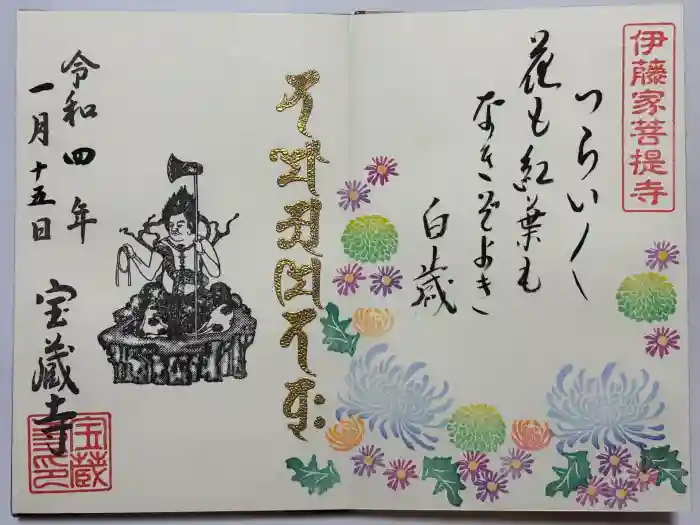 伊藤家菩提寺
花も紅葉も
なきぞよき
白蔵
令和四年
一月十五日
宝蔵寺
宝蔵
寺印